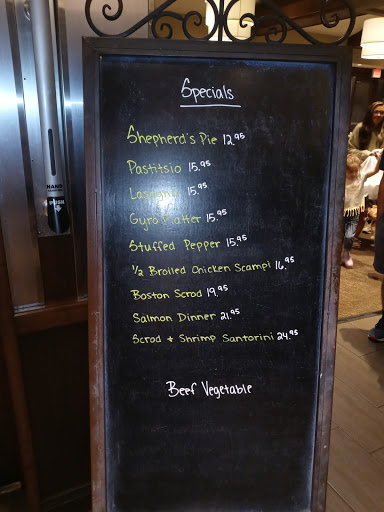 Specials
Shepherd's Pie 12.95
Pastitsio 15.95
Lasagna 15.95
Gyro Platter 15.95
Stuffed Pepper 15.95
1/2 Broiled Chicken Scampi 16.95
Boston Scrod 19.95
Salmon Dinner 21.95
Scrod + Shrimp Santorini 24.95
Beef Vegetable
HAND
PUSH